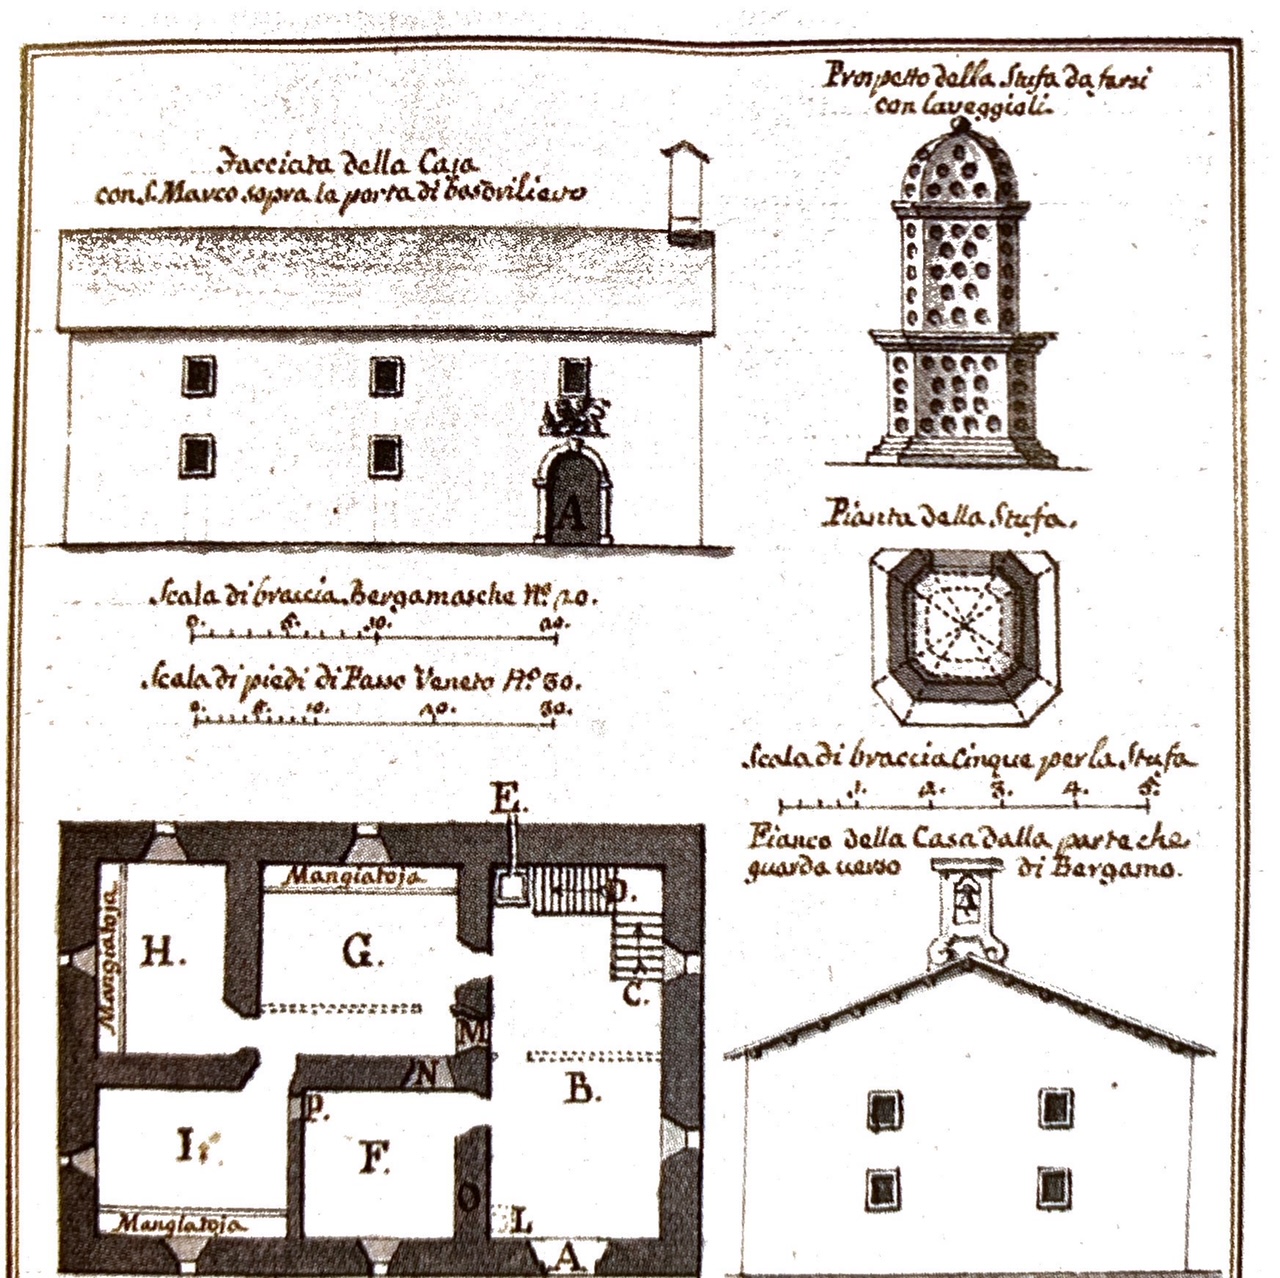 Prospetto della Stufa da farsi
con laveggioli.
Facciata della Casa
con S. Marco sopra la porta di
A
Pianta della Stufa.
Scala di braccia Bergamasche N.º 20.
0. 5. 10. 20.
Scala di piedi di Passo Veneto N.º 30.
0. 5. 10. 20. 30.
Scala di braccia Cinque per la Stufa
1. 2. 3. 4. 5.
Fianco della Casa dalla parte che
guarda verso di Bergamo.
E.
Mangiatoja
D.
Mangiatoja
H.
G.
C.
M
N
B.
P.
I.
F.
O
L
Mangiatoja
A